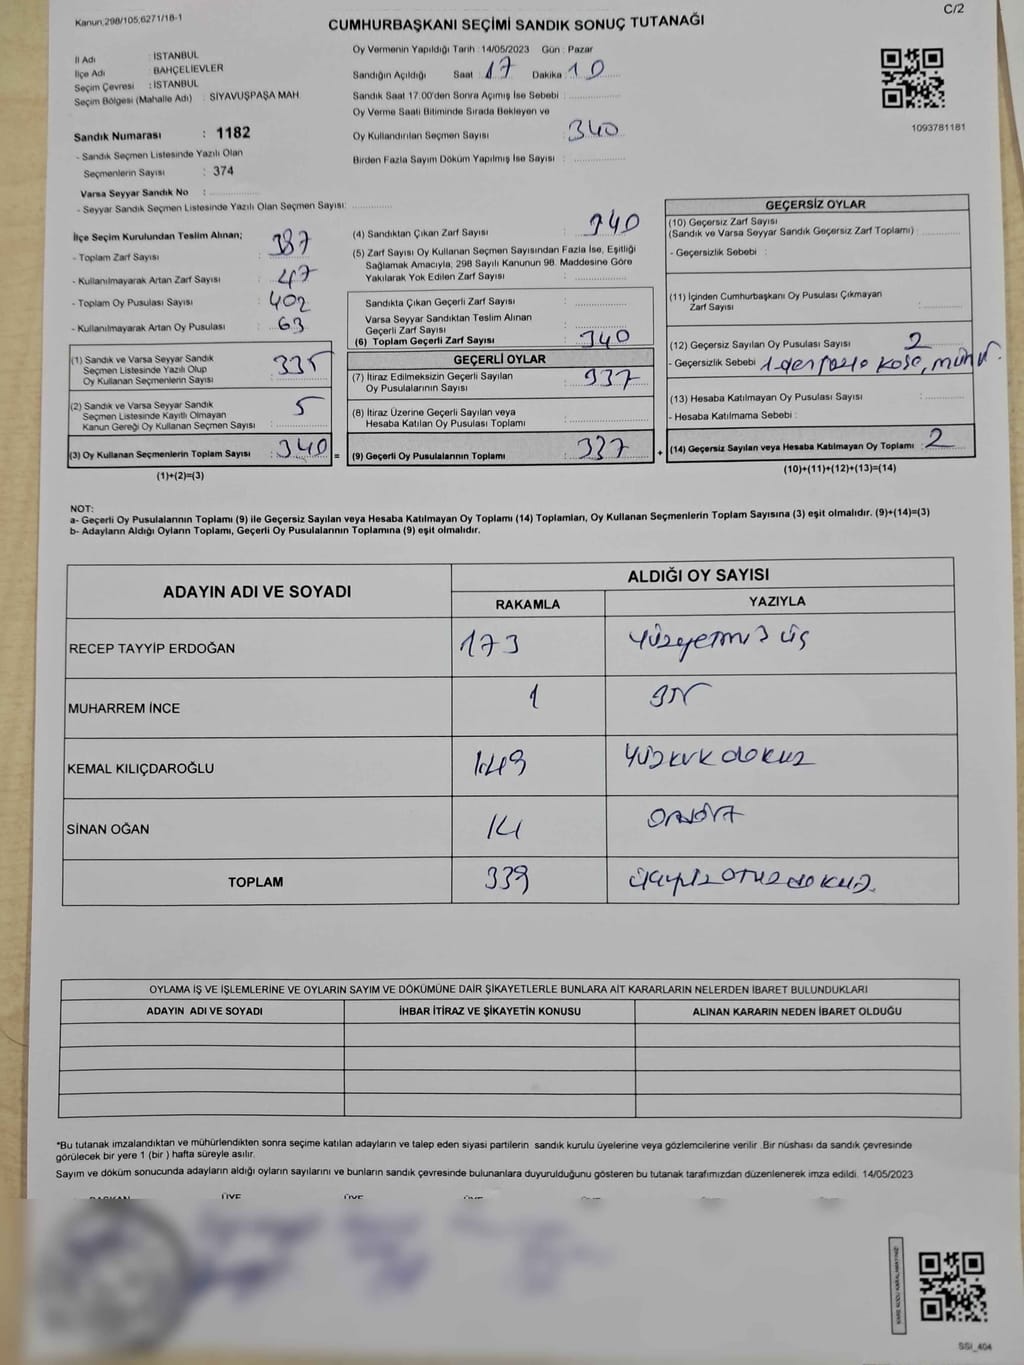 Kanun,298/105,6271/18-1
C/2
CUMHURBAŞKANI SEÇİMİ SANDIK SONUÇ TUTANAĞI
İl Adı : İSTANBUL
İlçe Adı : BAHÇELİEVLER
Seçim Çevresi : İSTANBUL
Seçim Bölgesi (Mahalle Adı) : SİYAVUŞPAŞA MAH.
Sandık Numarası : 1182
- Sandık Seçmen Listesinde Yazılı Olan
Seçmenlerin Sayısı : 374
Varsa Seyyar Sandık No :
- Seyyar Sandık Seçmen Listesinde Yazılı Olan Seçmen Sayısı:
Oy Vermenin Yapıldığı Tarih : 14/05/2023 Gün : Pazar
Sandığın Açıldığı Saat : 17 Dakika : 10
Sandık Saat 17:00'den Sonra Açımış İse Sebebi :
Oy Verme Saati Bitiminde Sırada Bekleyen ve
Oy Kullandırılan Seçmen Sayısı : 340
Birden Fazla Sayım Döküm Yapılmış İse Sayısı :
1093781181
İlçe Seçim Kurulundan Teslim Alınan;
- Toplam Zarf Sayısı : 387
- Kullanılmayarak Artan Zarf Sayısı : 47
- Toplam Oy Pusulası Sayısı : 402
- Kullanılmayarak Artan Oy Pusulası : 63
(1) Sandık ve Varsa Seyyar Sandık
Seçmen Listesinde Yazılı Olup
Oy Kullanan Seçmenlerin Sayısı : 335
(2) Sandık ve Varsa Seyyar Sandık
Seçmen Listesinde Kayıtlı Olmayan
Kanun Gereği Oy Kullanan Seçmen Sayısı : 5
(3) Oy Kullanan Seçmenlerin Toplam Sayısı : 340 =
(1)+(2)=(3)
(4) Sandıktan Çıkan Zarf Sayısı : 340
(5) Zarf Sayısı Oy Kullanan Seçmen Sayısından Fazla İse, Eşitliği
Sağlamak Amacıyla, 298 Sayılı Kanunun 98. Maddesine Göre
Yakılarak Yok Edilen Zarf Sayısı :
Sandıkta Çıkan Geçerli Zarf Sayısı :
Varsa Seyyar Sandıktan Teslim Alınan
Geçerli Zarf Sayısı :
(6) Toplam Geçerli Zarf Sayısı : 340
GEÇERLİ OYLAR
(7) İtiraz Edilmeksizin Geçerli Sayılan
Oy Pusulalarının Sayısı : 337
(8) İtiraz Üzerine Geçerli Sayılan veya
Hesaba Katılan Oy Pusulası Toplamı :
(9) Geçerli Oy Pusulalarının Toplamı : 337 +
GEÇERSİZ OYLAR
(10) Geçersiz Zarf Sayısı
(Sandık ve Varsa Seyyar Sandık Geçersiz Zarf Toplamı) :
- Geçersizlik Sebebi :
(11) İçinden Cumhurbaşkanı Oy Pusulası Çıkmayan
Zarf Sayısı :
(12) Geçersiz Sayılan Oy Pusulası Sayısı : 2
- Geçersizlik Sebebi 1 den fazla kaşe, mühür.
(13) Hesaba Katılmayan Oy Pusulası Sayısı :
- Hesaba Katılmama Sebebi :
(14) Geçersiz Sayılan veya Hesaba Katılmayan Oy Toplamı : 2
(10)+(11)+(12)+(13)=(14)
NOT:
a- Geçerli Oy Pusulalarının Toplamı (9) ile Geçersiz Sayılan veya Hesaba Katılmayan Oy Toplamı (14) Toplamları, Oy Kullanan Seçmenlerin Toplam Sayısına (3) eşit olmalıdır. (9)+(14)=(3)
b- Adayların Aldığı Oyların Toplamı, Geçerli Oy Pusulalarının Toplamına (9) eşit olmalıdır.
ADAYIN ADI VE SOYADI
ALDIĞI OY SAYISI
RAKAMLA YAZIYLA
RECEP TAYYİP ERDOĞAN 173 Yüzyetmiş üç
MUHARREM İNCE 1 BİR
KEMAL KILIÇDAROĞLU 149 Yüzkırk dokuz
SİNAN OĞAN 14 Ondört
TOPLAM 339 üçyüz otuz dokuz.
OYLAMA İŞ VE İŞLEMLERİNE VE OYLARIN SAYIM VE DÖKÜMÜNE DAİR ŞİKAYETLERLE BUNLARA AİT KARARLARIN NELERDEN İBARET BULUNDUKLARI
ADAYIN ADI VE SOYADI İHBAR İTİRAZ VE ŞİKAYETİN KONUSU ALINAN KARARIN NEDEN İBARET OLDUĞU
*Bu tutanak imzalandıktan ve mühürlendikten sonra seçime katılan adayların ve talep eden siyasi partilerin sandık kurulu üyelerine veya gözlemcilerine verilir .Bir nüshası da sandık çevresinde
görülecek bir yere 1 (bir ) hafta süreyle asılır.
Sayım ve döküm sonucunda adayların aldığı oyların sayılarını ve bunların sandık çevresinde bulunanlara duyurulduğunu gösteren bu tutanak tarafımızdan düzenlenerek imza edildi. 14/05/2023
BAŞKAN ÜYE ÜYE ÜYE
SSI_404